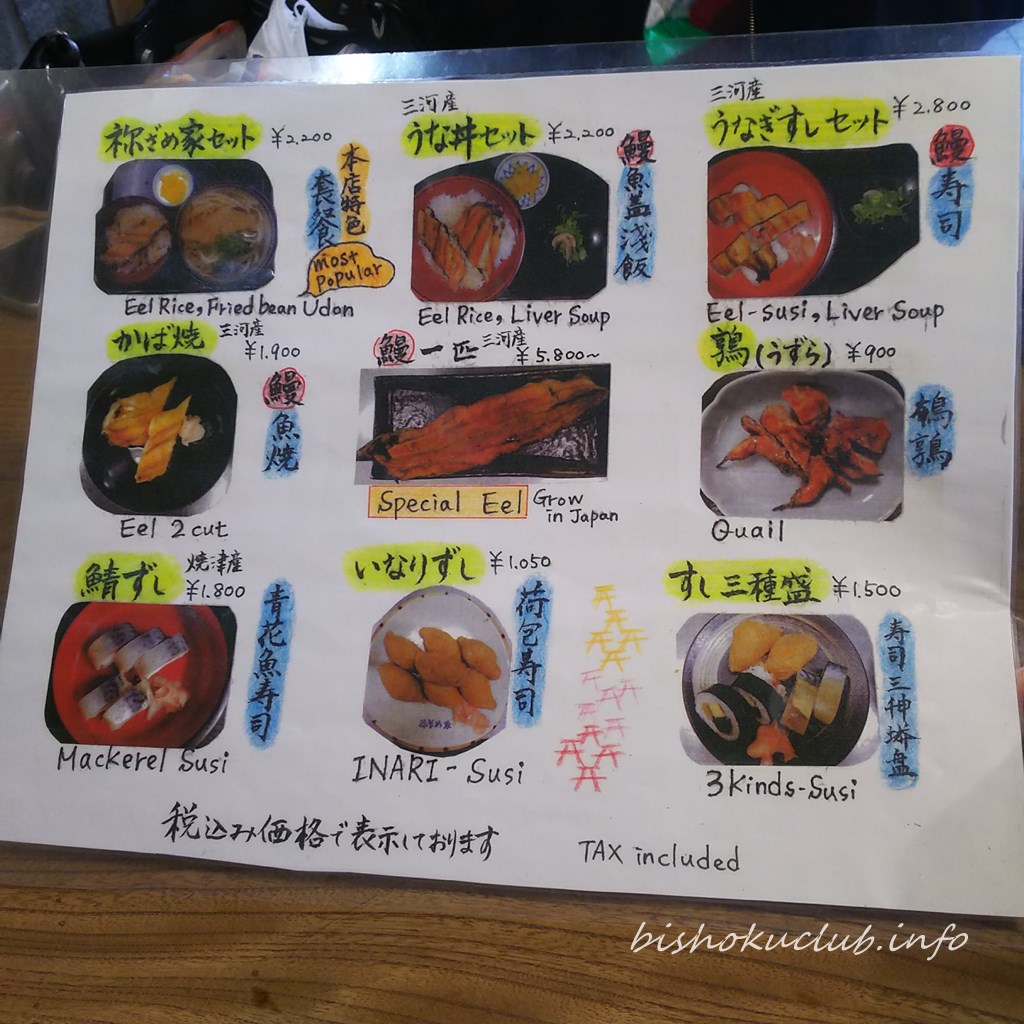 祢ざめ家セット ¥2,200
本店特色
套餐
most
popular
Eel Rice, Fried bean Udon
三河産
うな丼セット ¥2,200
鰻魚盖浅飯
Eel Rice, Liver Soup
三河産
うなぎすしセット ¥2.800
鰻寿司
Eel-susi, Liver Soup
かば焼 三河産
¥1.900
鰻魚焼
Eel 2cut
鰻一匹 三河産
¥5,800~
Special Eel Grow
in Japan
鶉(うずら) ¥900
鵪鶉
Quail
鯖ずし 焼津産
¥1.800
青花魚寿司
Mackerel Susi
いなりずし ¥1.050
荷包寿司
INARI-Susi
すし三種盛 ¥1.500
寿司三种拼盘
3Kinds-Susi
税込み価格で表示しております
TAX included
bishokuclub.info